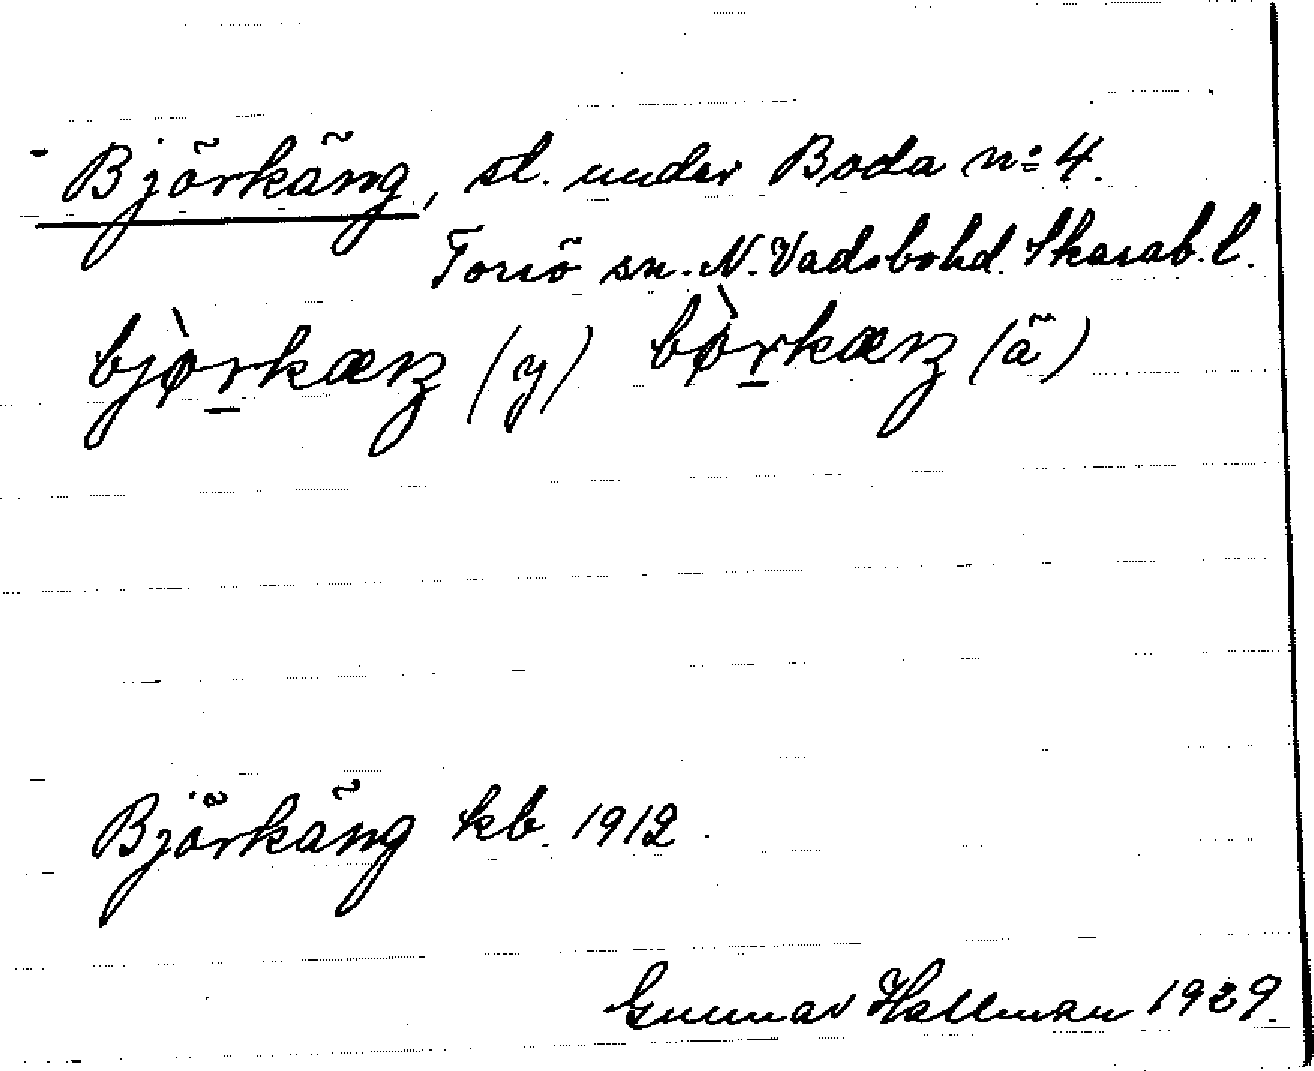 Björkäng, st. under Boda n:o 4.
Torsö sn. N. Vadsbohd. Skarab. l.
bjørkæŋ (y) børkæŋ (ä)
Björkäng kb. 1912.
Gunnar Hallman 1929.